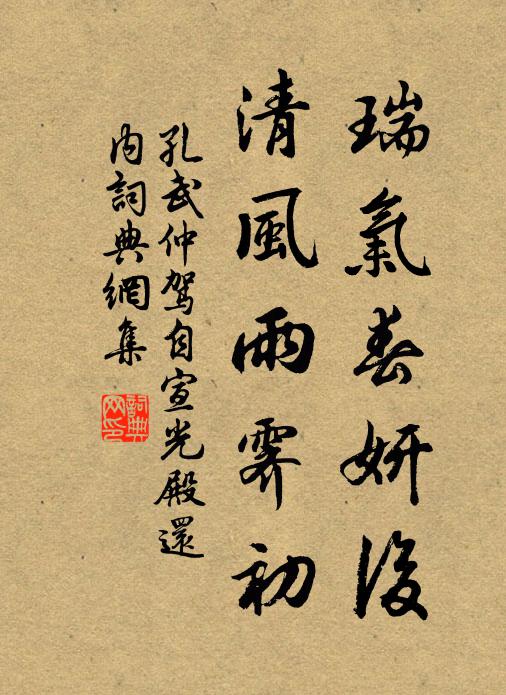 瑞氣春妍後
清風雨霽初
孔武仲駕自宣光殿還
內詞典網集
詞典網印